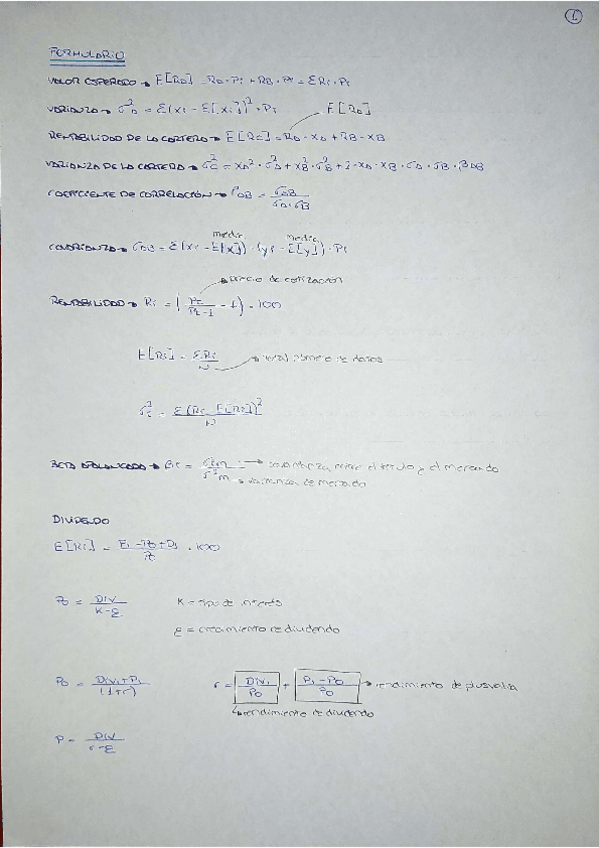 1
FORMULARIO
VALOR ESPERADO → E[RA] = RA · Pi + RB · Pi = ΣRi · Pi
VARIANZA → σ²A = Σ(xi - E[xi])² · Pi
E[RA]
RENTABILIDAD DE LA CARTERA → E[Rc] = RA · XA + RB · XB
VARIANZA DE LA CARTERA → σ²c = XA² · σ²A + XB² · σ²B + 2 · XA · XB · σA · σB · ρAB
COEFICIENTE DE CORRELACIÓN → ρAB = σAB / σA · σB
media media
COVARIANZA → σAB = Σ(xi - E[x]) · (yi - E[y]) · Pi
precio de cotización
RENTABILIDAD → Ri = (Pt / Pt-1 - 1) · 100
E[Ri] = ΣRi / N → total número de datos
σ²i = Σ(Ri - E[Ri])² / N
BETA APALANCADA → βi = σim / σ²m → covarianza entre el título y el mercado
→ varianza de mercado
DIVIDENDO
E[Ri] = P1 - P0 + D1 / P0 · 100
P0 = DIV / K - g K = tipo de interés
g = crecimiento de dividendo
P0 = DIV1 + P1 / (1+r) r = DIV1 / P0 + P1 - P0 / P0 → rendimiento de plusvalía
↳ rendimiento de dividendo
P = DIV / r - g